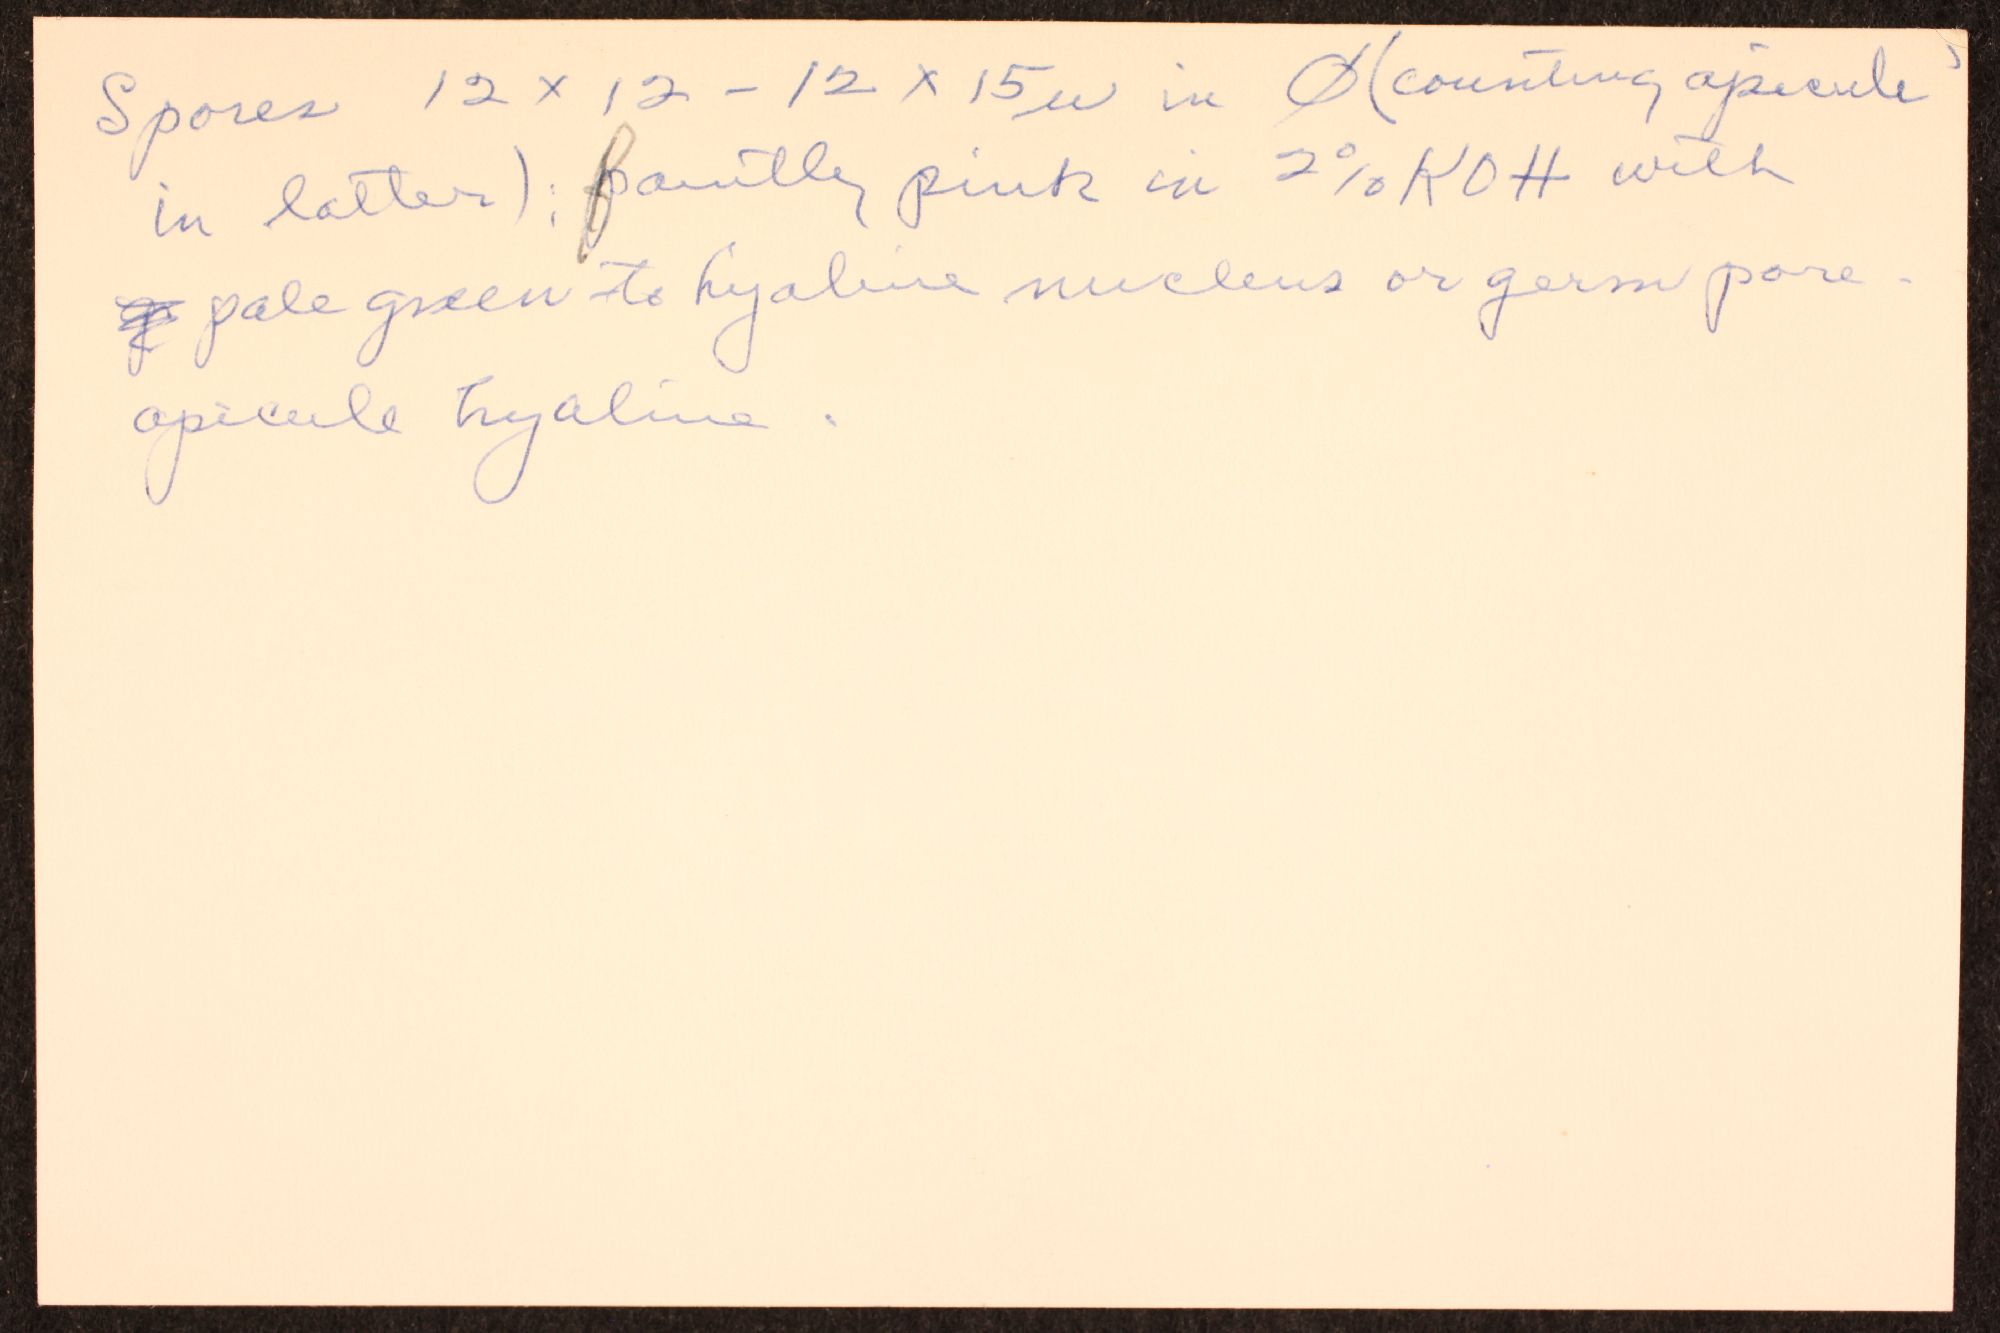 Spores 12 x 12 - 12 x 15 u in Ø (counting apicule)
in latter); faintly pink in 2% KOH with
pale green to hyaline nucleus or germ pore -
apicule hyaline.